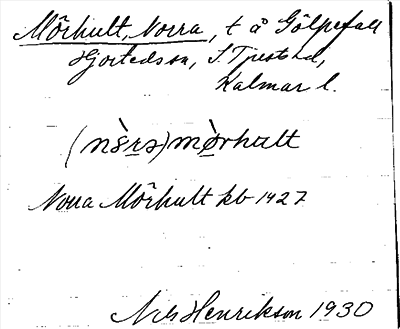 Mörhult, Norra, t å Gölpefall
Hjortedssn, S. Tjusts hd,
Kalmar l.
(nὲrə) mòrhult
Norra Mörhult kb 1927
Nils Henrikson 1930